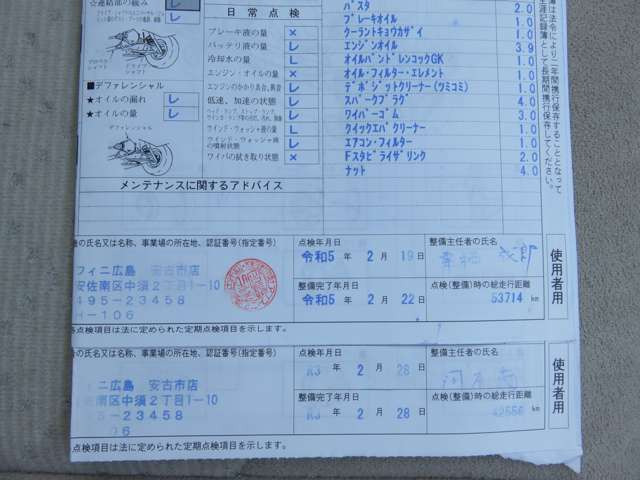 ☆連結部の緩み
■デファレンシャル
★オイルの漏れ レ
★オイルの量 レ
デファレンシャル
日常点検
ブレーキ液の量 ×
バッテリ液の量 レ
冷却水の量 L
エンジン・オイルの量 ×
エンジンのかかり具合、異音 レ
低速、加速の状態 レ
ウインド・ウォッシャ液の量 L
ウインド・ウォッシャ液の噴射状態 レ
ワイパの拭き取り状態 ×
パスタ 2.0
ブレーキオイル 1.0
クーラントキョウカザイ 1.0
エンジンオイル 3.9
オイルパンドレンコックGK 1.0
オイル・フィルター・エレメント 1.0
デポジットクリーナー(ツミコミ) 1.0
スパークプラグ 4.0
ワイパーゴム 3.0
クイックエバクリーナー 1.0
エアコン・フィルター 1.0
Fスタビライザリンク 2.0
ナット 4.0
簿は法令により二年間携行保存することとなって
生涯記録簿として長期間携行保存してください。
メンテナンスに関するアドバイス
の氏名又は名称、事業場の所在地、認証番号(指定番号)
フィニ広島 安古市店
安佐南区中須2丁目1-10
495-23458
-106
点検年月日
令和5年 2月 19日
整備主任者の氏名
整備完了年月日
令和5年 2月 22日
点検(整備)時の総走行距離
53714 km
使用者用
点検項目は法に定められた定期点検項目を示します。
の氏名又は名称、事業場の所在地、認証番号(指定番号)
ィニ広島 安古市店
南区中須2丁目1-10
5-23458
06
点検年月日
R3年 2月 28日
整備主任者の氏名
整備完了年月日
R3年 2月 28日
点検(整備)時の総走行距離
km
使用者用
点検項目は法に定められた定期点検項目を示します。